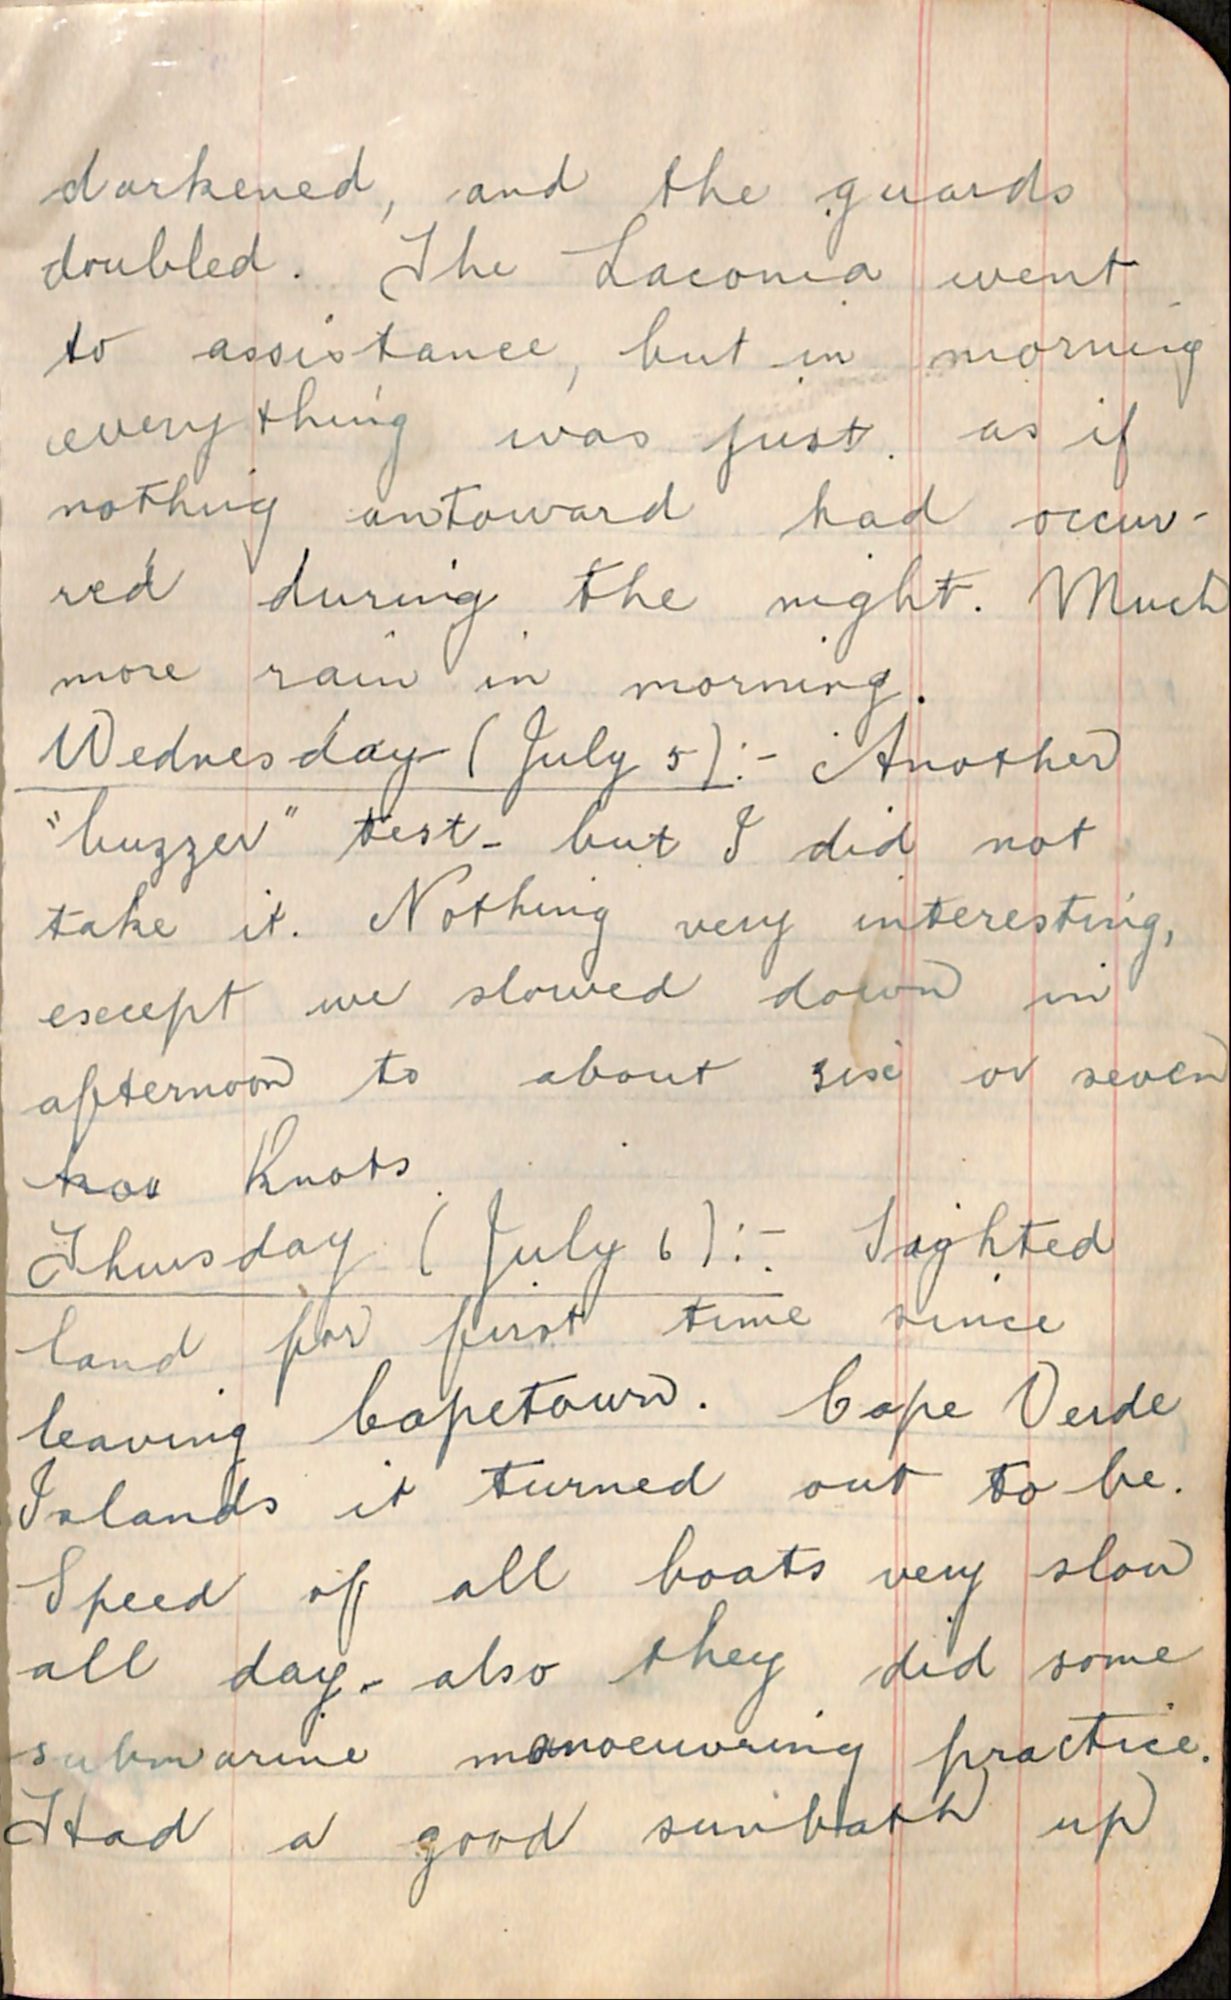 darkened, and the guards
doubled. The Laconia went
to assistance, but in morning
everything was just as if
nothing untoward had occur-
red during the night. Much
more rain in morning.
Wednesday (July 5):- Another
"buzzer" test - but I did not
take it. Nothing very interesting,
except we slowed down in
afternoon to about six or seven
knots
Thursday (July 6):- Sighted
land for first time since
leaving Capetown. Cape Verde
Islands it turned out to be.
Speed of all boats very slow
all day - also they did some
submarine manoeuvring practice.
Had a good sunbath up